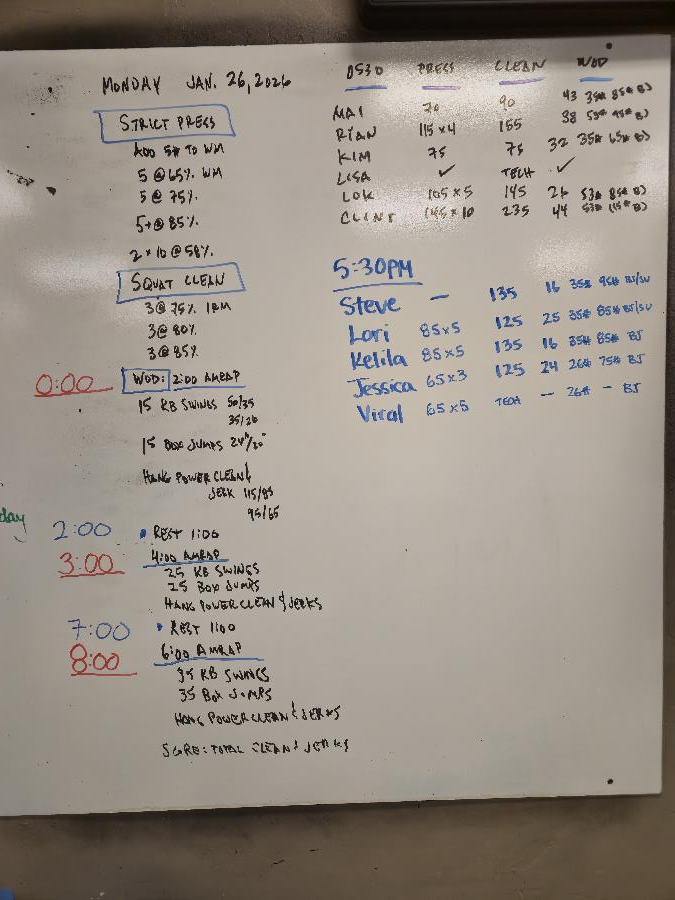 MONDAY JAN. 26, 2026
STRICT PRESS
ADD 5# TO WM
5 @ 65% WM
5 @ 75%
5+ @ 85%
2 × 10 @ 58%
SQUAT CLEAN
3 @ 75% 1RM
3 @ 80%
3 @ 85%
0:00 WOD: 2:00 AMRAP
15 KB SWINGS 50/35
35/26
15 BOX JUMPS 24"/20"
HANG POWER CLEAN &
JERK 115/85
95/65
day
2:00 • REST 1:00
3:00 4:00 AMRAP
25 KB SWINGS
25 BOX JUMPS
HANG POWER CLEAN & JERKS
7:00 • REST 1:00
8:00 6:00 AMRAP
35 KB SWINGS
35 BOX JUMPS
HANG POWER CLEAN & JERKS
SCORE: TOTAL CLEAN & JERKS
0530 PRESS CLEAN WOD
MAI 70 90 43 35# 85# BJ
RYAN 115 x 4 155 38 53# 95# BJ
KIM 75 75 32 35# 65# BJ
LISA ✓ TECH ✓
LOK 105 x 5 145 26 53# 85# BJ
CLINT 145 x 10 235 44 53# 115# BJ
5:30PM
Steve — 135 16 35# 95# BJ/SU
Lori 85x5 125 25 35# 85# BJ/SU
Kelila 85x5 135 16 35# 85# BJ
Jessica 65x3 125 24 26# 75# BJ
Viral 65x5 TECH — 26# — BJ